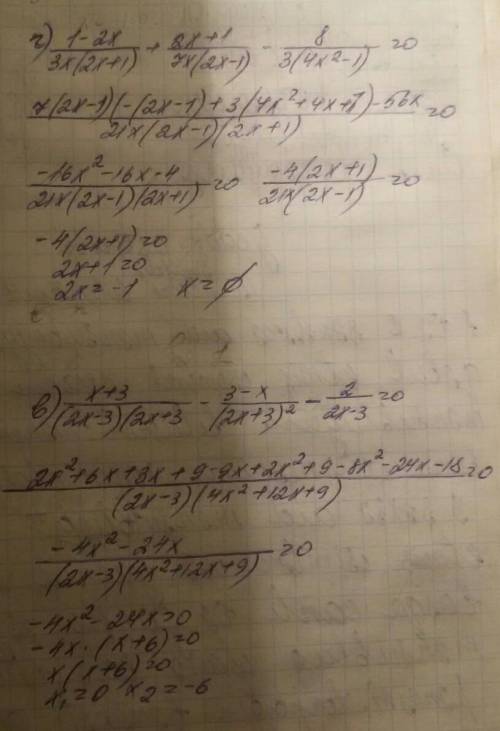 г) (1-2x)/(3x(2x+1)) + (2x+1)/(7x(2x-1)) - 8/(3(4x²-1)) =0
(7(2x-1)(-(2x-1)+3(4x²+4x+1)-56x)/(21x(2x-1)(2x+1)) =0
(-16x²-16x-4)/(21x(2x-1)(2x+1)) =0   (-4(2x+1))/(21x(2x-1)) =0
-4(2x+1)=0
2x+1=0
2x=-1   x=∅
в) (x+3)/((2x-3)(2x+3) - (3-x)/((2x+3)²) - 2/(2x-3) =0
(2x²+6x+3x+9-9x+2x²+9-8x²-24x-18)/((2x-3)(4x²+12x+9)) =0
(-4x²-24x)/((2x-3)(4x²+12x+9)) =0
-4x²-24x=0
-4x·(x+6)=0
x(x+6)=0
x₁=0 x₂=-6